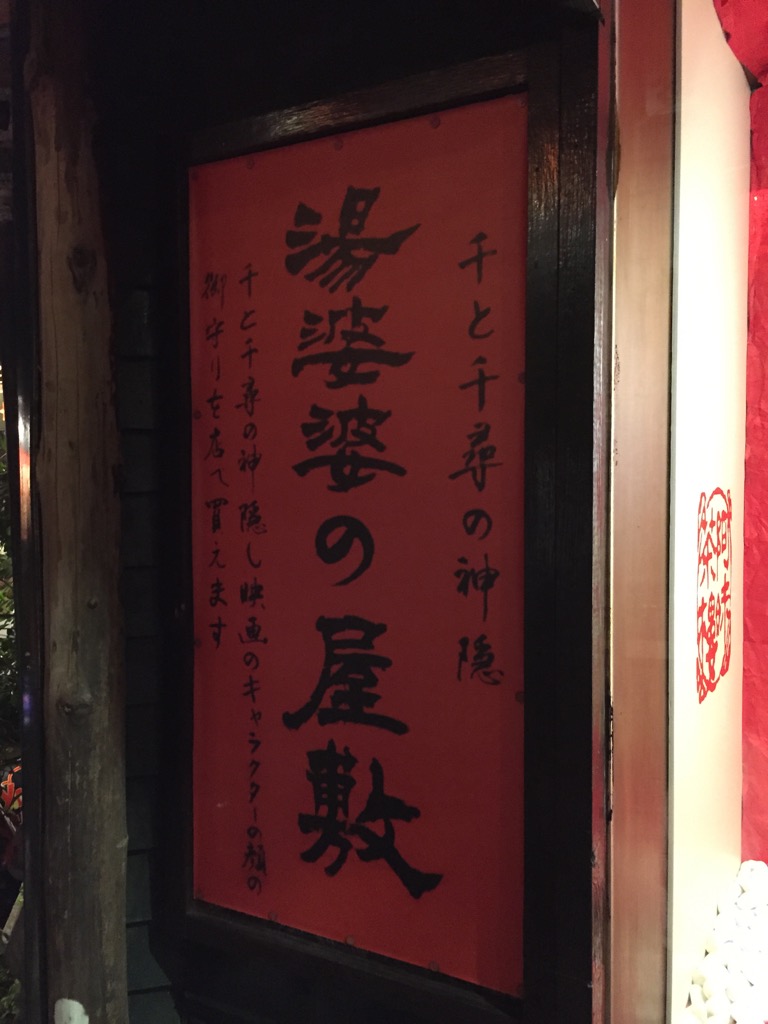 千と千尋の神隠
湯婆婆の屋敷
千と千尋の神隠し映画のキャラクターの顔の
御守りを店で買えます
阿妹
茶樓